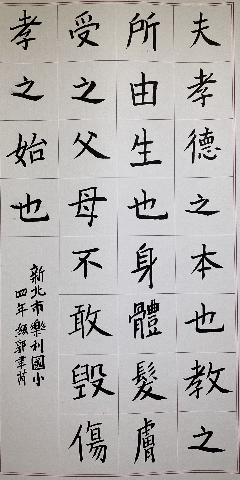 夫孝德之本也教之
所由生也身體髮膚
受之父母不敢毀傷
孝之始也
新北市樂利國小
四年級郭聿芮